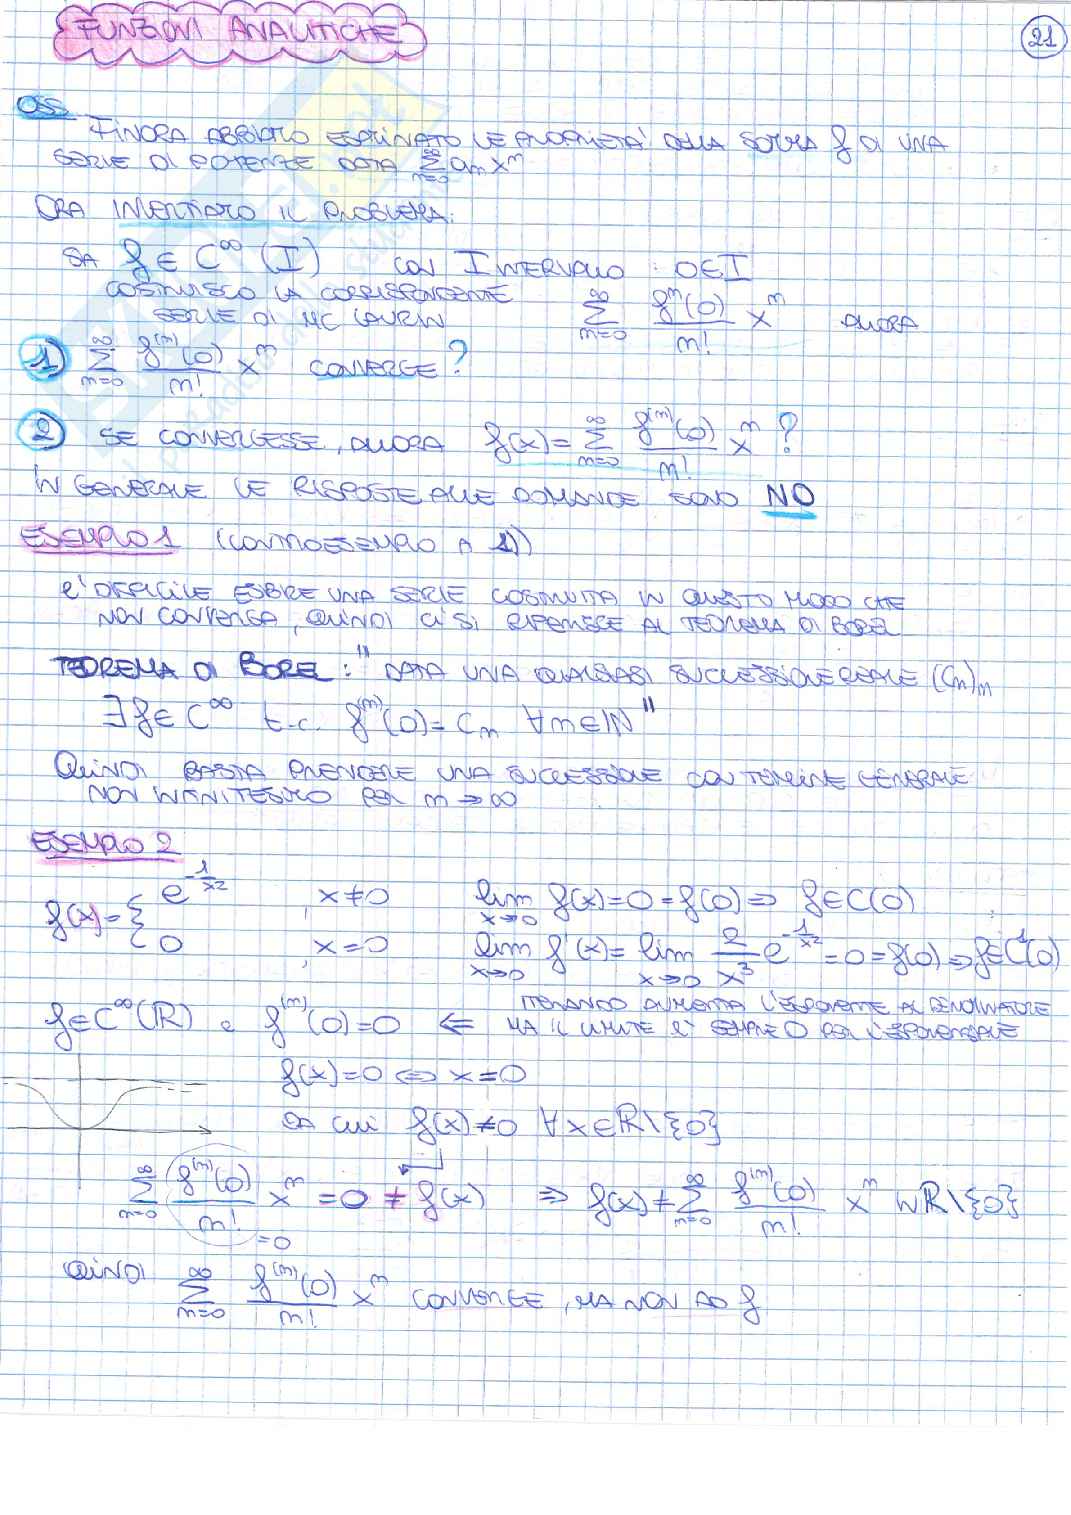 FUNZIONI ANALITICHE
21
OSS
FINORA ABBIAMO ESAMINATO LE PROPRIETA' DELLA SOMMA f DI UNA
SERIE DI POTENZE DATA \sum_{n=0}^{∞} a_n x^n
ORA INVERTIAMO IL PROBLEMA:
SIA f ∈ C^∞ (I) CON I INTERVALLO : 0∈I
COSTRUISCO LA CORRISPONDENTE
SERIE DI MC LAURIN \sum_{n=0}^{∞} \frac{f^n(0)}{n!} x^n ALLORA
1) \sum_{n=0}^{∞} \frac{f^{(n)}(0)}{n!} x^n CONVERGE?
2) SE CONVERGESSE, ALLORA f(x) = \sum_{n=0}^{∞} \frac{f^{(n)}(0)}{n!} x^n ?
IN GENERALE LE RISPOSTE ALLE DOMANDE SONO NO
ESEMPIO 1 (CONTROESEMPIO A 1))
E' DIFFICILE ESIBIRE UNA SERIE COSTRUITA IN QUESTO MODO CHE
NON CONVERGA, QUINDI CI SI RIFERISCE AL TEOREMA DI BOREL
TEOREMA DI BOREL : "DATA UNA QUALSIASI SUCCESSIONE REALE (C_n)_n
∃ f ∈ C^∞ t.c. f^{(n)}(0) = C_n ∀n∈ℕ"
QUINDI BASTA PRENDERE UNA SUCCESSIONE CON TERMINE GENERALE
NON INFINITESIMO PER n → ∞
ESEMPIO 2
f(x) = { e^{-\frac{1}{x^2}} , x≠0 \lim_{x→0} f(x) = 0 = f(0) ⇒ f∈C(0)
0 , x=0 \lim_{x→0} f'(x) = \lim_{x→0} \frac{2}{x^3} e^{-\frac{1}{x^2}} = 0 = f(0) ⇒ f∈C^1(0)
f∈C^∞(ℝ) e f^{(n)}(0) = 0 ⇐ ITERANDO AUMENTA L'ESPONENTE AL DENOMINATORE
MA IL LIMITE E' SEMPRE 0 PER L'ESPONENZIALE
f(x)=0 ⇔ x=0
DA CUI f(x)≠0 ∀x∈ℝ\{0}
\sum_{n=0}^{∞} \frac{f^{(n)}(0)}{n!} x^n = 0 ≠ f(x) ⇒ f(x) ≠ \sum_{n=0}^{∞} \frac{f^{(n)}(0)}{n!} x^n IN ℝ\{0}
=0
QUINDI \sum_{n=0}^{∞} \frac{f^{(n)}(0)}{n!} x^n CONVERGE, MA NON AD f